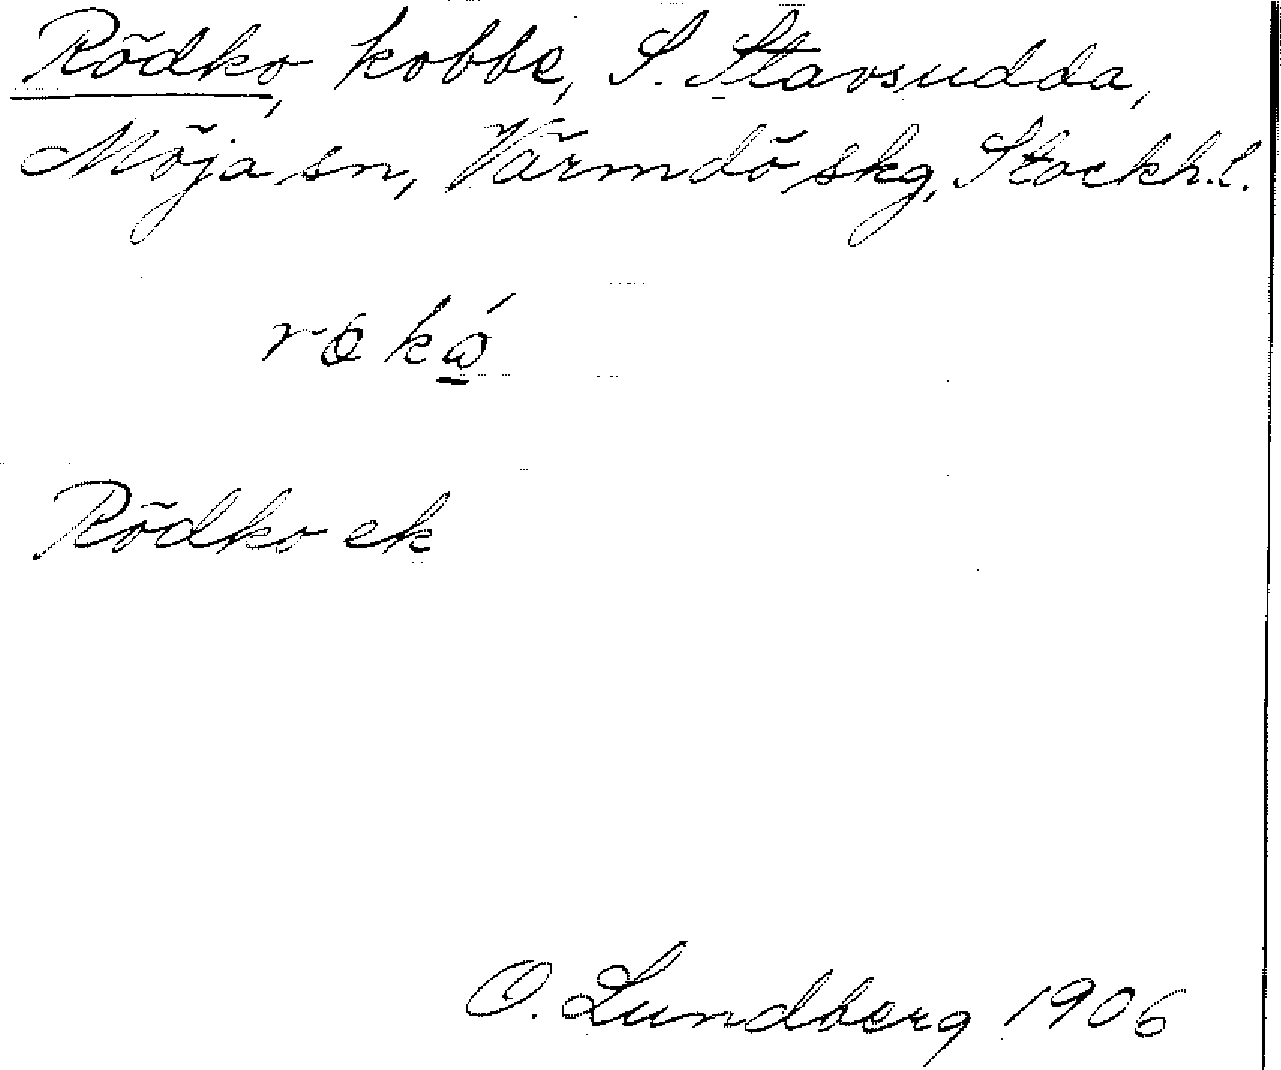 Rödko, kobbe, S. Stavsudda,
Möja sn, Värmdö skg, Stockh.l.
Rödko ek
O. Lundberg 1906